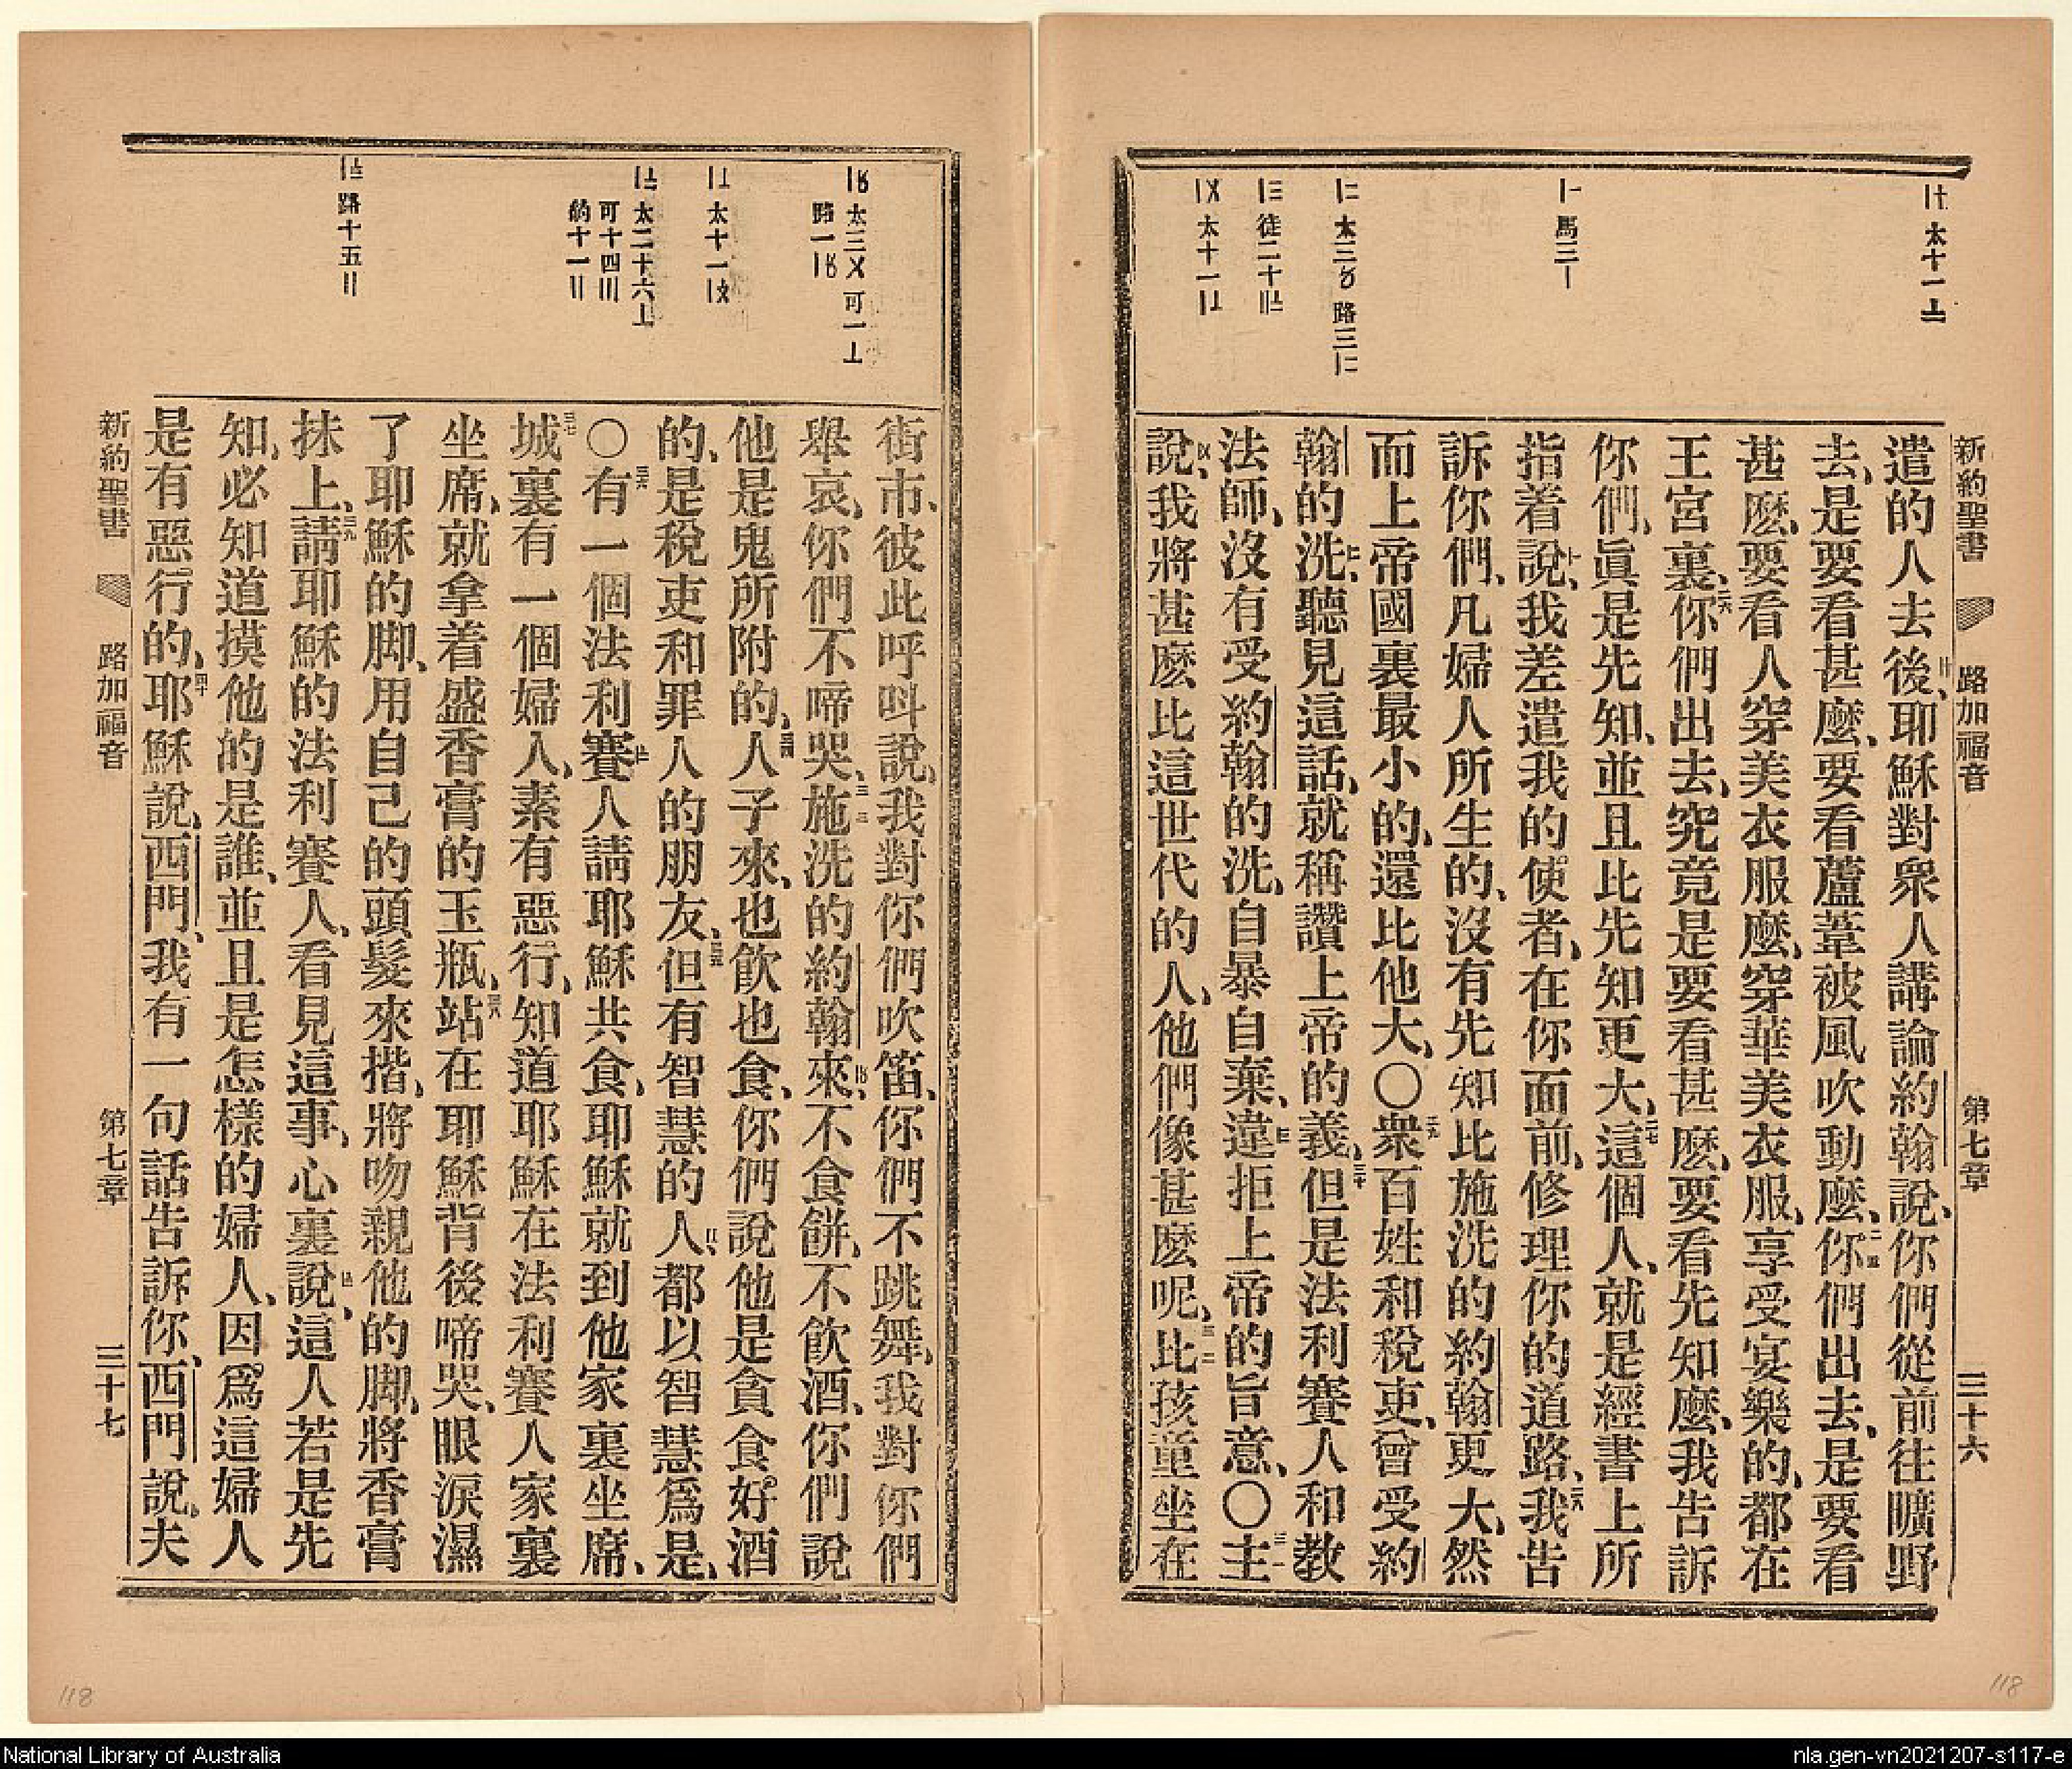 新約聖書 路加福音 第七章 三十六
〡〨 太十一〧
〡 馬三〡
〡二 太三〥 路三〡二
〡三 徒二十
〡〤 太十一
遣的人去後、耶穌對衆人講論約翰說、你們從前往曠野
去、是要看甚麽、要看蘆葦被風吹動麽、你們出去、是要看
甚麽、要看人穿美衣服麽、穿華美衣服、享受宴樂的、都在
王宮裏、你們出去、究竟是要看甚麽、要看先知麽、我告訴
你們、眞是先知、並且比先知更大、這個人、就是經書上所
指着說、我差遣我的使者、在你面前、修理你的道路、我告
訴你們、凡婦人所生的、沒有先知比施洗的約翰更大、然
而上帝國裏最小的、還比他大、〇衆百姓和稅吏、曾受約
翰的洗、聽見這話、就稱讚上帝的義、但是法利賽人和教
法師、沒有受約翰的洗、自暴自棄、違拒上帝的旨意、〇主
說、我將甚麽比這世代的人、他們像甚麽呢、比孩童坐在
太三〤 可一〦
路一
太十一
太二十六〦
可十四〣
約十一〢
路十五〢
街市、彼此呼呌說、我對你們吹笛、你們不跳舞、我對你們
舉哀、你們不啼哭、施洗的約翰來、不食餅、不飮酒、你們說
他是鬼所附的、人子來、也飮也食、你們說他是貪食好酒
的、是稅吏和罪人的朋友、但有智慧的人、都以智慧爲是、
〇有一個法利賽人請耶穌共食、耶穌就到他家裏坐席、
城裏有一個婦人、素有惡行、知道耶穌在法利賽人家裏
坐席、就拿着盛香膏的玉瓶、站在耶穌背後啼哭、眼淚濕
了耶穌的脚、用自己的頭髮來揩、將吻親他的脚、將香膏
抹上、請耶穌的法利賽人、看見這事、心裏說、這人若是先
知、必知道摸他的是誰、並且是怎樣的婦人、因爲這婦人
是有惡行的、耶穌說、西門、我有一句話告訴你、西門說、夫
新約聖書 路加福音 第七章 三十七
118
118
National Library of Australia
nla.gen-vn2021207-s117-e